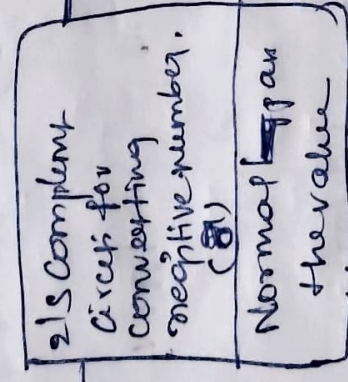 2's Complemt
circit for
converting
negitive number.
(or)
Normal pan
the value